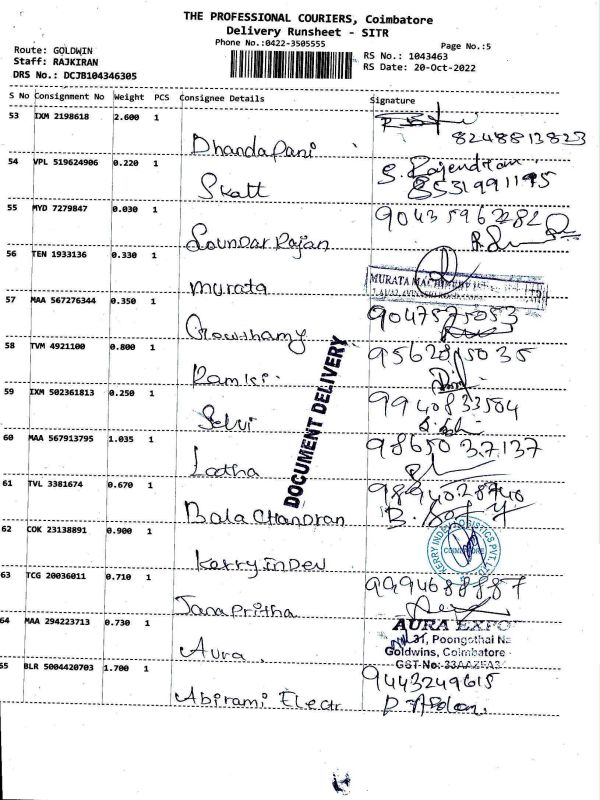 THE PROFESSIONAL COURIERS, Coimbatore
Delivery Runsheet - SITR
Phone No.:0422-3505555
Page No.:5
Route: GOLDWIN
Staff: RAJKIRAN
DRS No.: DCJB104346305
RS No.: 1043463
RS Date: 20-Oct-2022
S No Consignment No Weight PCS Consignee Details Signature
53 IXM 2198618 2.600 1
8248813823
Dhandapani
54 VPL 519624906 0.220 1
S. Rajendran
8531991195
Skatt
55 MYD 7279847 0.030 1
9043596282
Soundar Rajan
56 TEN 1933136 0.330 1
murata
MURATA MACHINERY
57 MAA 567276344 0.350 1
9047575053
Gowthamy
58 TVM 4921100 0.800 1
Ramki
59 IXM 502361813 0.250 1
9940833504
Selvi
60 MAA 567913795 1.035 1
9865037137
Latha
61 TVL 3381674 0.670 1
Bala Chandran
62 COK 23138891 0.900 1
KERRY INDEV LOGISTICS PVT. LTD.
COIMBATORE
Kerry indev
63 TCG 20036011 0.710 1
9994688887
Jana Pritha
64 MAA 294223713 0.730 1
AURA EXPO
31, Poongothai Na
Goldwins, Coimbatore -
GST No: 33AAZFA3
Aura
65 BLR 5004420703 1.700 1
9443249615
Abirami Electr
DOCUMENT DELIVERY